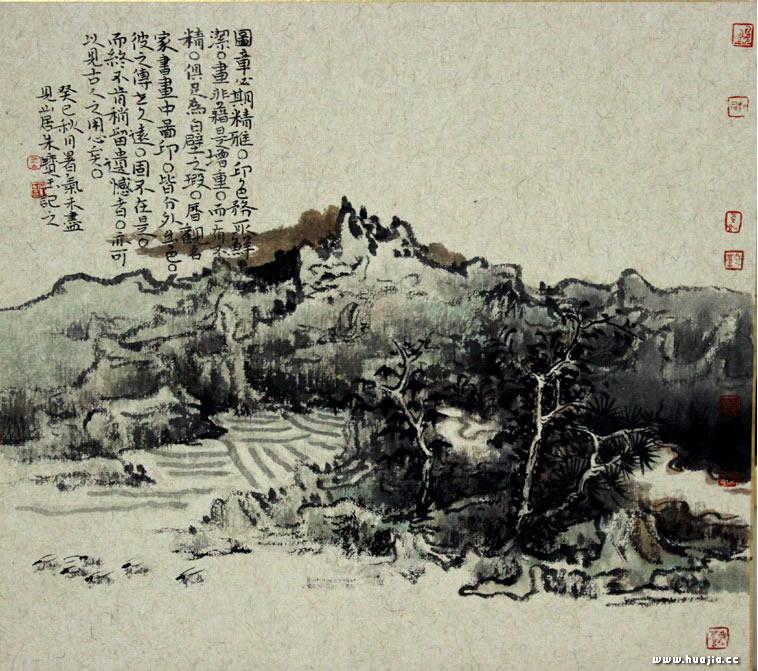 圖章必期精雅。印色務取鮮
潔。畫非藉是增重。而一有不
精。俱足為白璧之瑕。歷觀名
家書畫中圖印。皆分外生色。
彼之傳世久遠。固不在是。
而終不肯稍留遺憾者。亦可
以見古人之用心矣。
癸巳秋月暑氣未盡
見山居朱寶記之
www.huajia.cc